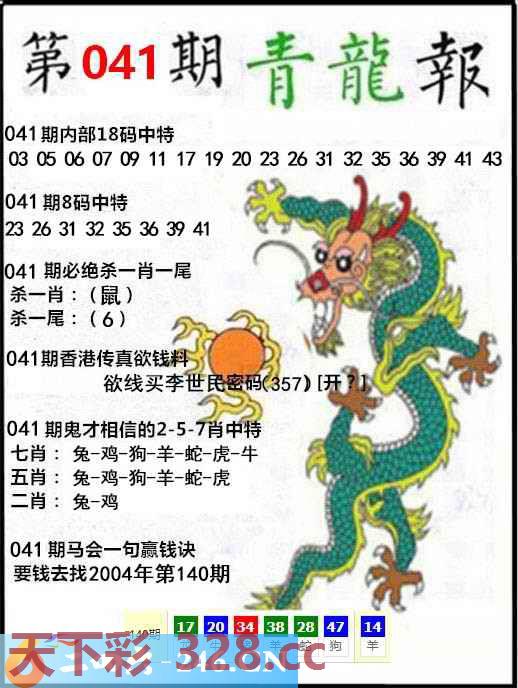 第041期青龍報
041期内部18码中特
03 05 06 07 09 11 17 19 20 23 26 31 32 35 36 39 41 43
041期8码中特
23 26 31 32 35 36 39 41
041 期必绝杀一肖一尾
杀一肖：(鼠)
杀一尾：(6)
041期香港传真欲钱料
欲线买李世民密码(357) [开?]
041期鬼才相信的2-5-7肖中特
七肖：兔-鸡-狗-羊-蛇-虎-牛
五肖：兔-鸡-狗-羊-蛇-虎
二肖：兔-鸡
041期马会一句赢钱诀
要钱去找2004年第140期
140期 17 20 34 38 28 47 14
蛇 狗 羊
天下彩-328.cc